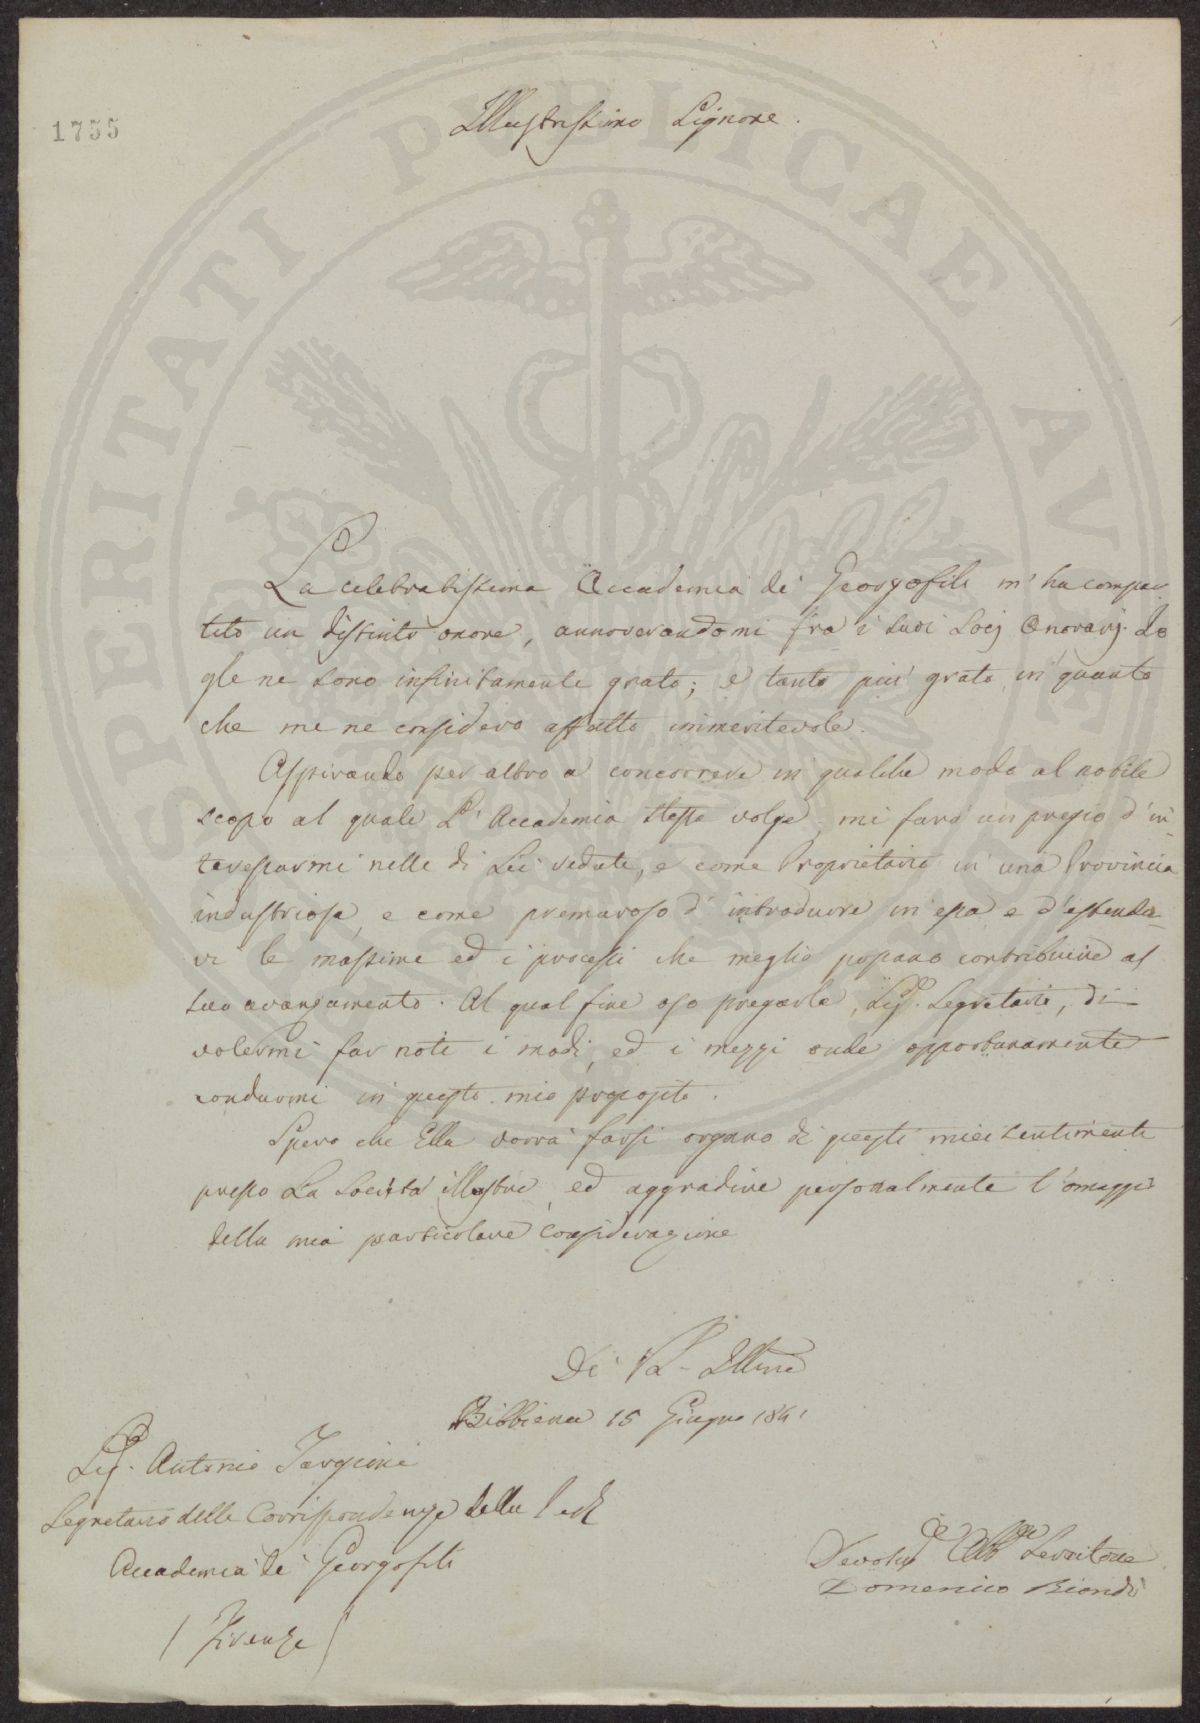 1755
Illustrissimo Signore.
La celebratissima Accademia de' Georgofili m'ha compar-
tito un distinto onore, annoverandomi fra i suoi Socj Onorarj. Io
gle ne sono infinitamente grato; e tanto più grato in quanto
che me ne considero affatto immeritevole.
Aspirando per altro a concorrere in qualche modo al nobile
scopo al quale l'Accademia stessa volge, mi farò un pregio d'in-
teressarmi nelle di Lei vedute, e come Proprietario in una Provincia
industriosa, e come premuroso d'introdurre in essa e d'estender-
vi le massime ed i processi che meglio possano contribuire al
suo avanzamento. Al qual fine oso pregarla, Sig. Segretario, di
volermi far noti i modi, ed i mezzi onde opportunamente
condurmi in questo mio proposito.
Spero che Ella vorrà farsi organo di questi miei sentimenti
presso La Società illustre, ed aggradire personalmente l'omaggio
della mia particolare considerazione
Di V.S. Illma
Bibbiena 15 Giugno 1841
Sig. Antonio Targioni
Segretario delle Corrispondenze della
Accademia de' Georgofili
(Firenze)
Devotmo Obbmo Servitore
Domenico Biondi
PROSPERITATI PUBLICAE AUGENDAE